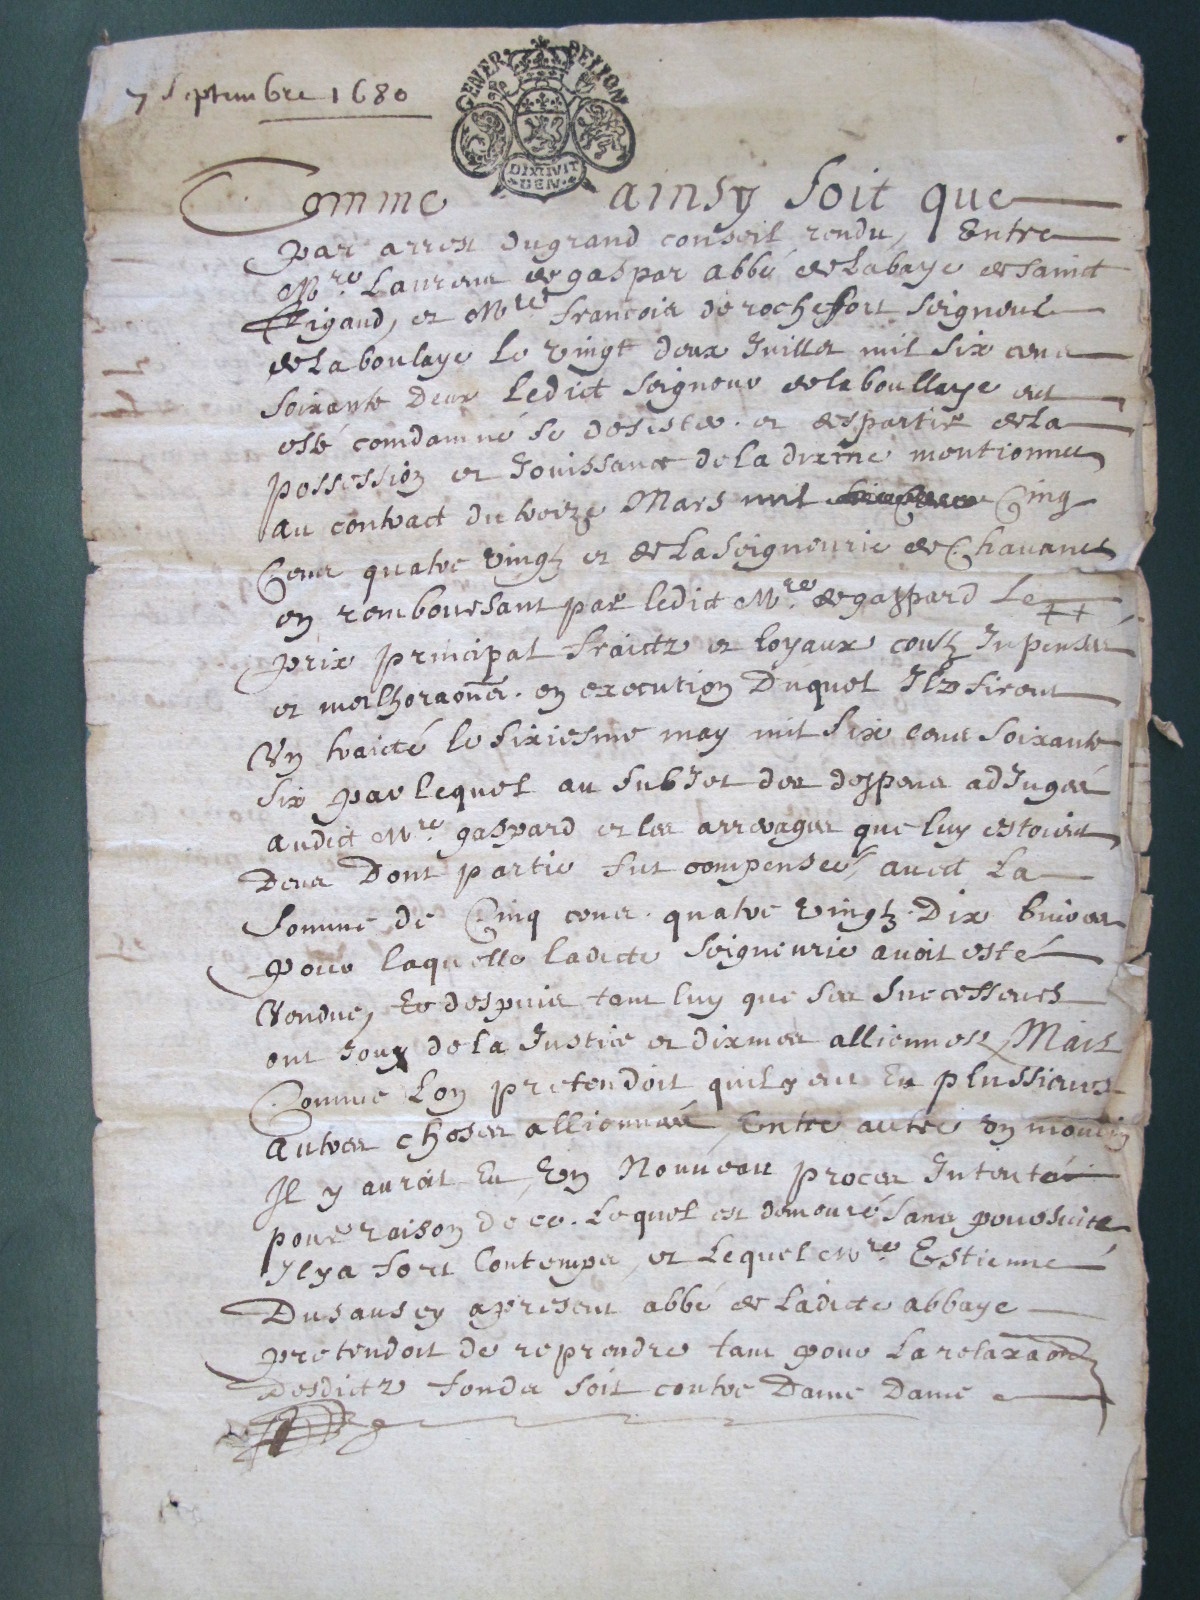 7 Septembre 1680
GENER PETION
DIX HVIT
DEN
Comme ainsy soit que
par arrest du grand conseil rendu, Entre
Mre Laurens de gaspar abbé de Labaye de sainct
Rigaud, et Mre francois de rochefort seigneur
de Laboulaye le vingt deux Juillet mil six cens
soixante deux Ledict seigneur de laboullaye est
esté comdamné se desister et despartir de la
possession et Jouissance de la dixme mentionnee
au contract du treize Mars mil Cinq
Cens quatre vingtz et de La seigneurie de Chavanes
en remboursant par ledict Mre de gaspard Le
prix principal fraictz et loyaux coustz Inpenses
et meilhoraons. en execution Duquel Ilz firent
Un traicté le sixiesme may mil six cens soixante
six par lequel au subJet des despens adJugés
audict Mre gaspard et les arrerages que luy estoient
Deus Dont partie fut compensée, avect La
somme de Cinq cens quatre vingtz Dix livres
pour laquelle ladicte seigneurie avoit esté
Vendue, Et despuis tant luy que ses successeurs
ont Jouy de la Justice et dixmes alliennes Mais
Comme Lon pretendoit quil y eu Eu plussieurs
autres choses alliennées, Entre autre un moulin
Il y auroit Eu, Un Nouveau proces Intenté
pour raison de ce. Lequel est demouré sans poursuitte
Il y a fort Lontemps, et Lequel Mre Estienne
Dusausey apresent abbé de Ladicte abbaye
pretendoit de reprendre tant pour La relaxaon
Desdictz fondz soit contre Dame Dame